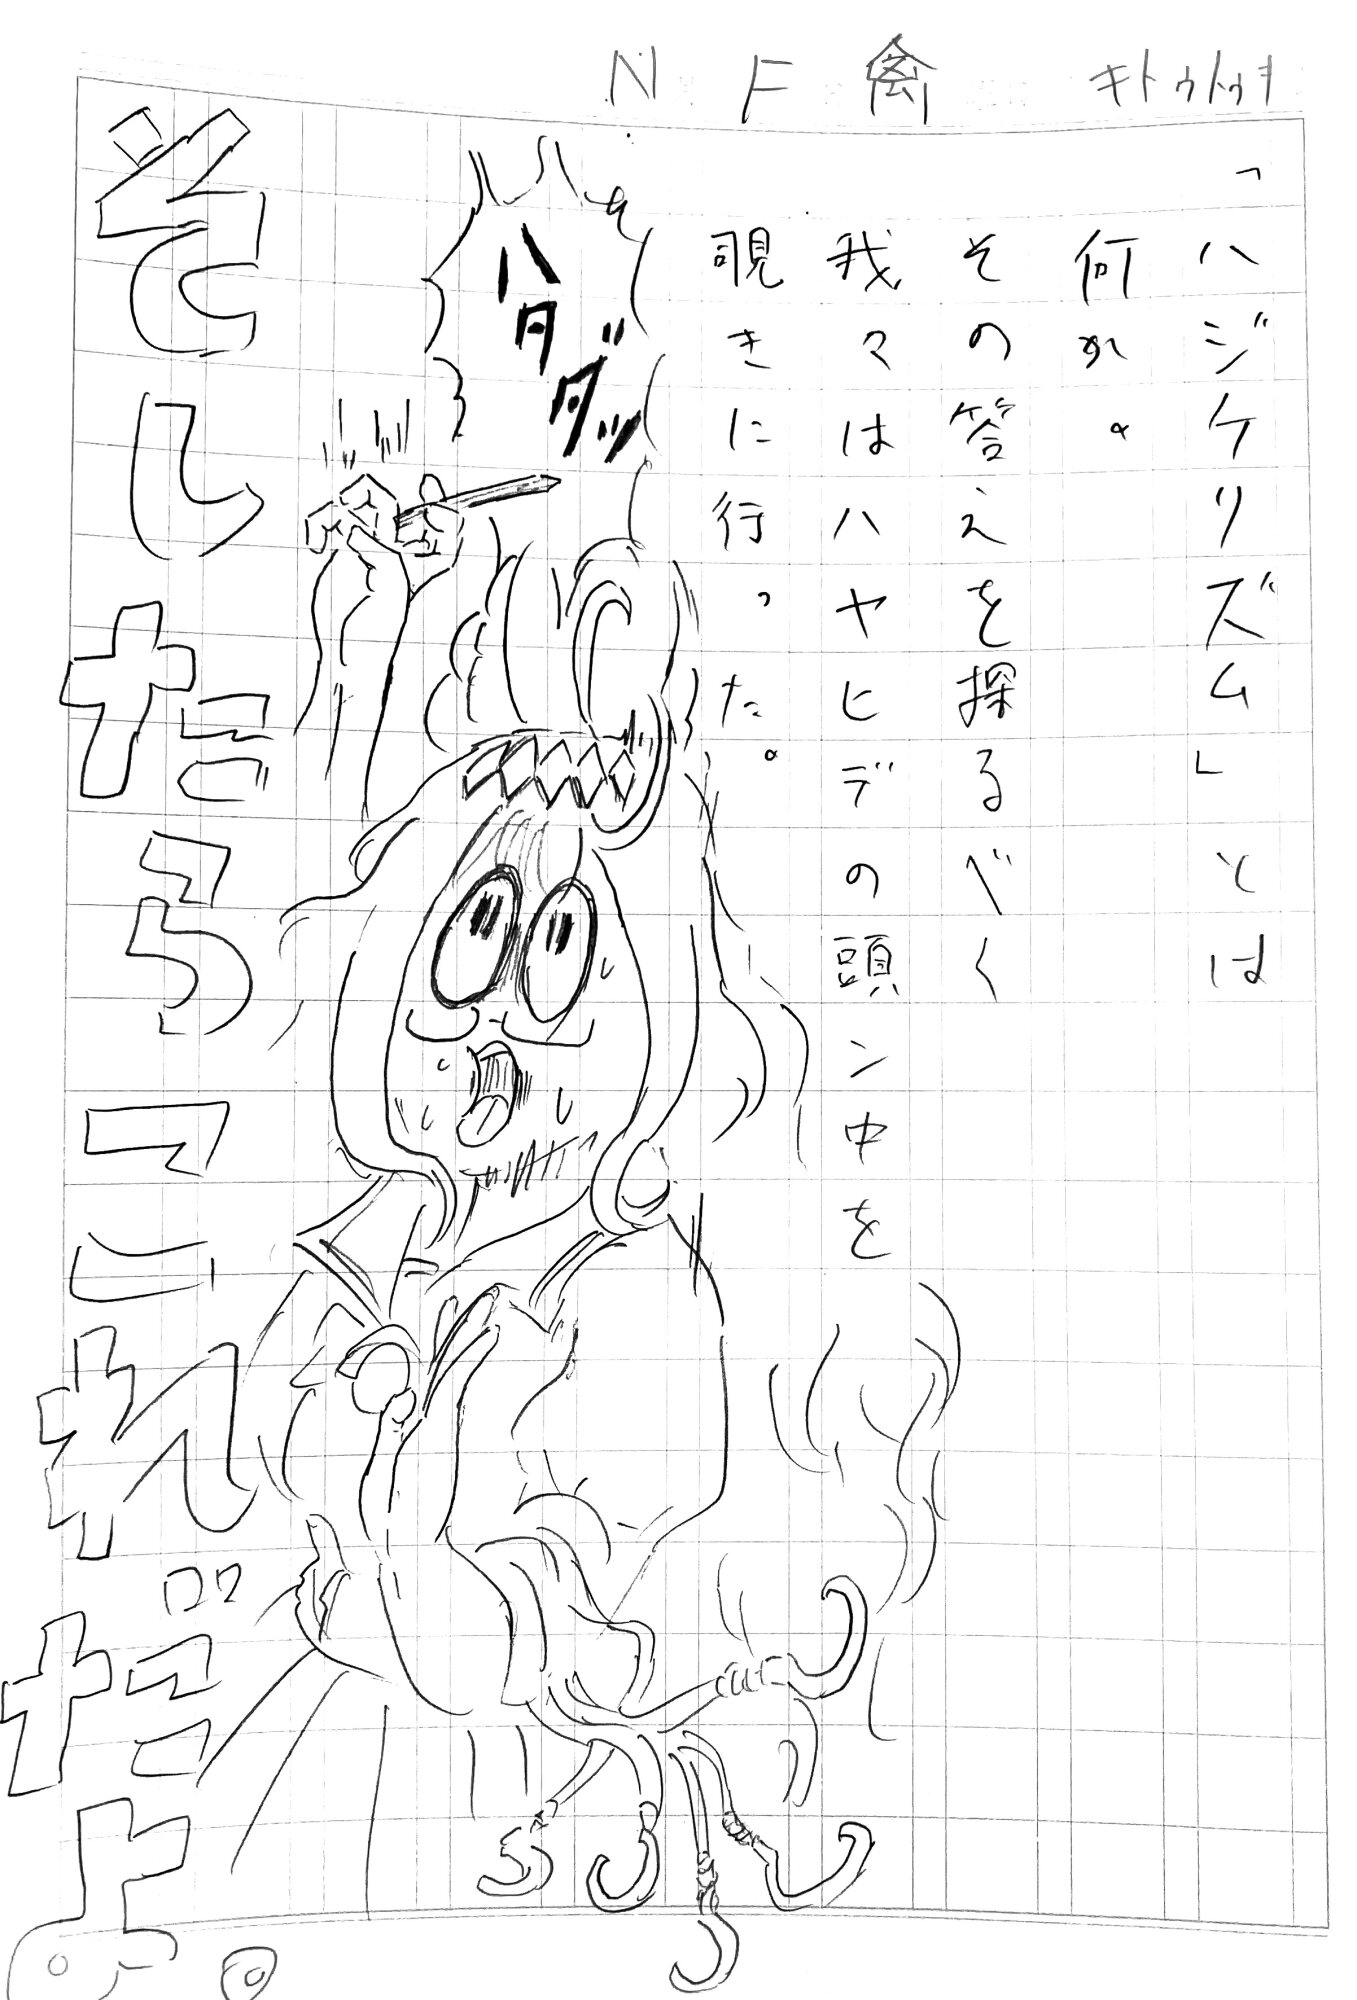 キトウトウキ 禽 F N
「ハジケリズム」とは
何か。
その答えを探るべく
我々はハヤヒデの頭ン中を
覗きに行った。
ハタ
ダッ
そしたらコレだよ